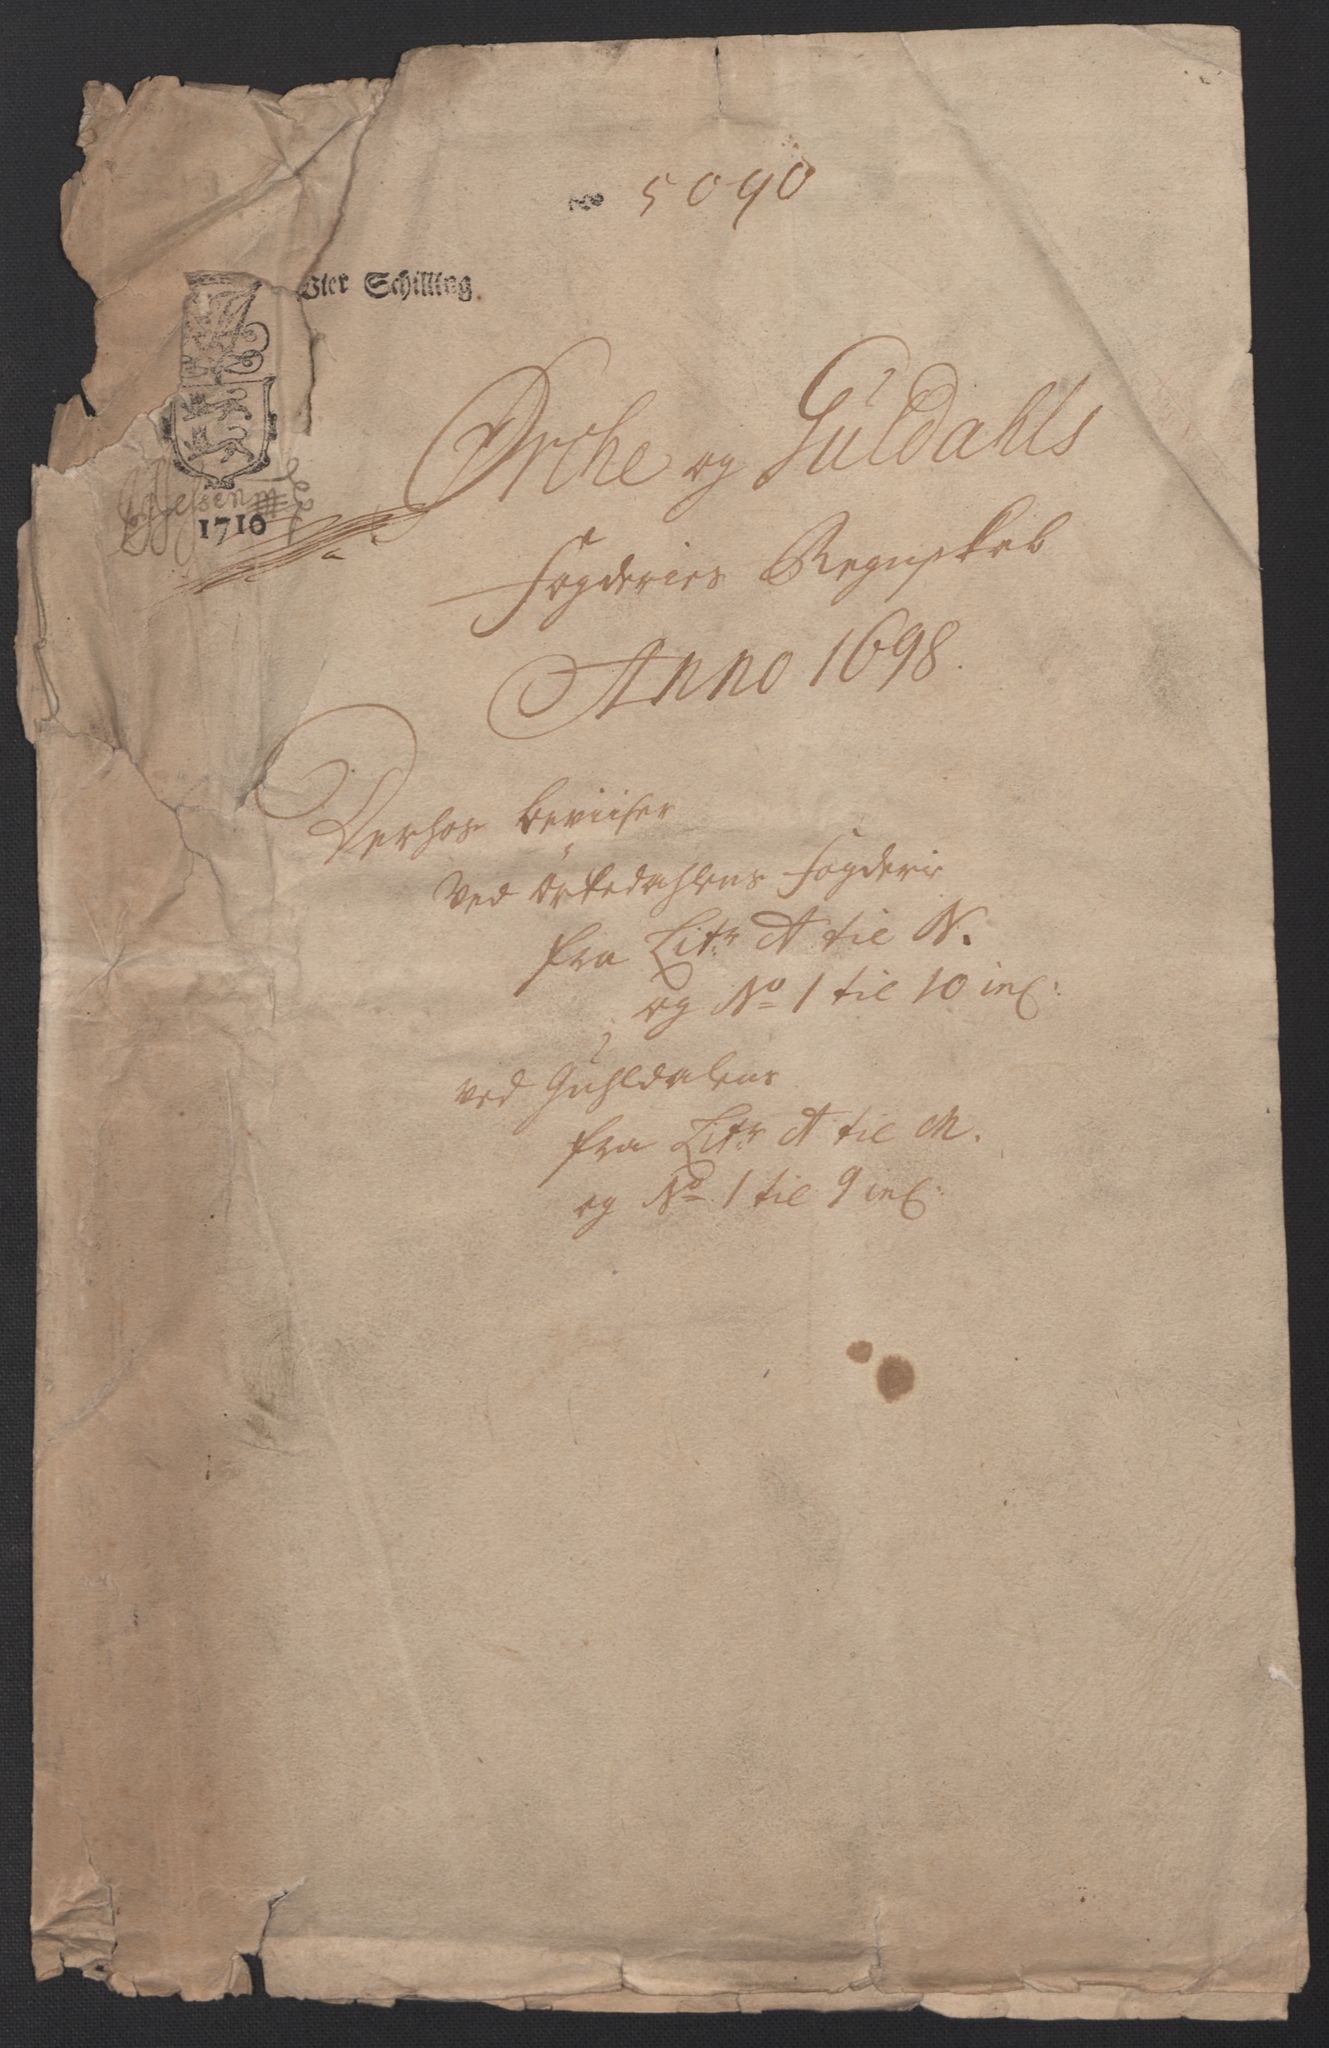 No 5090
Vier Schilling.
1710
Ørche og Guldahls
Fogderies Regnskab
Anno 1698.
Derhos beviiser
Ved Örkedahlens Fogderie
fra Litr A til N.
og No 1 til 10 incl:
ved Guhldalens
fra Litr A til M.
og No 1 til 9 incl: